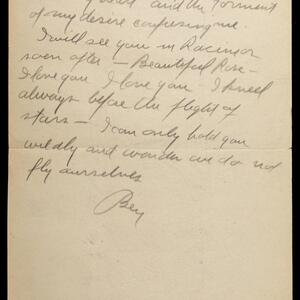 and the torment
of my desire confusing me.
I will see you in Racine or
soon after — Beautiful Rose —
I love you I love you I kneel
always before the flight of
stars — I can only hold you
wildly and wonder we do not
fly ourselves
Ben